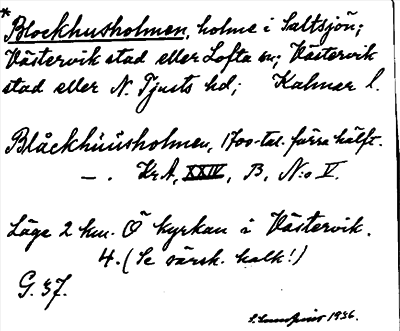 * Blockhusholmen, holme i Saltsjön;
Västervik stad eller Lofta sn; Västervik
stad eller N. Tjusts hd; Kalmar l.
Blåckhüüsholmen, 1700-tal. förra hälft.
— . Kr.A, XXIV, B, N:o V.
Läge 2 km. Ö kyrkan i Västervik.
4. (Se särsk. kalk!)
G. 37.
1936.